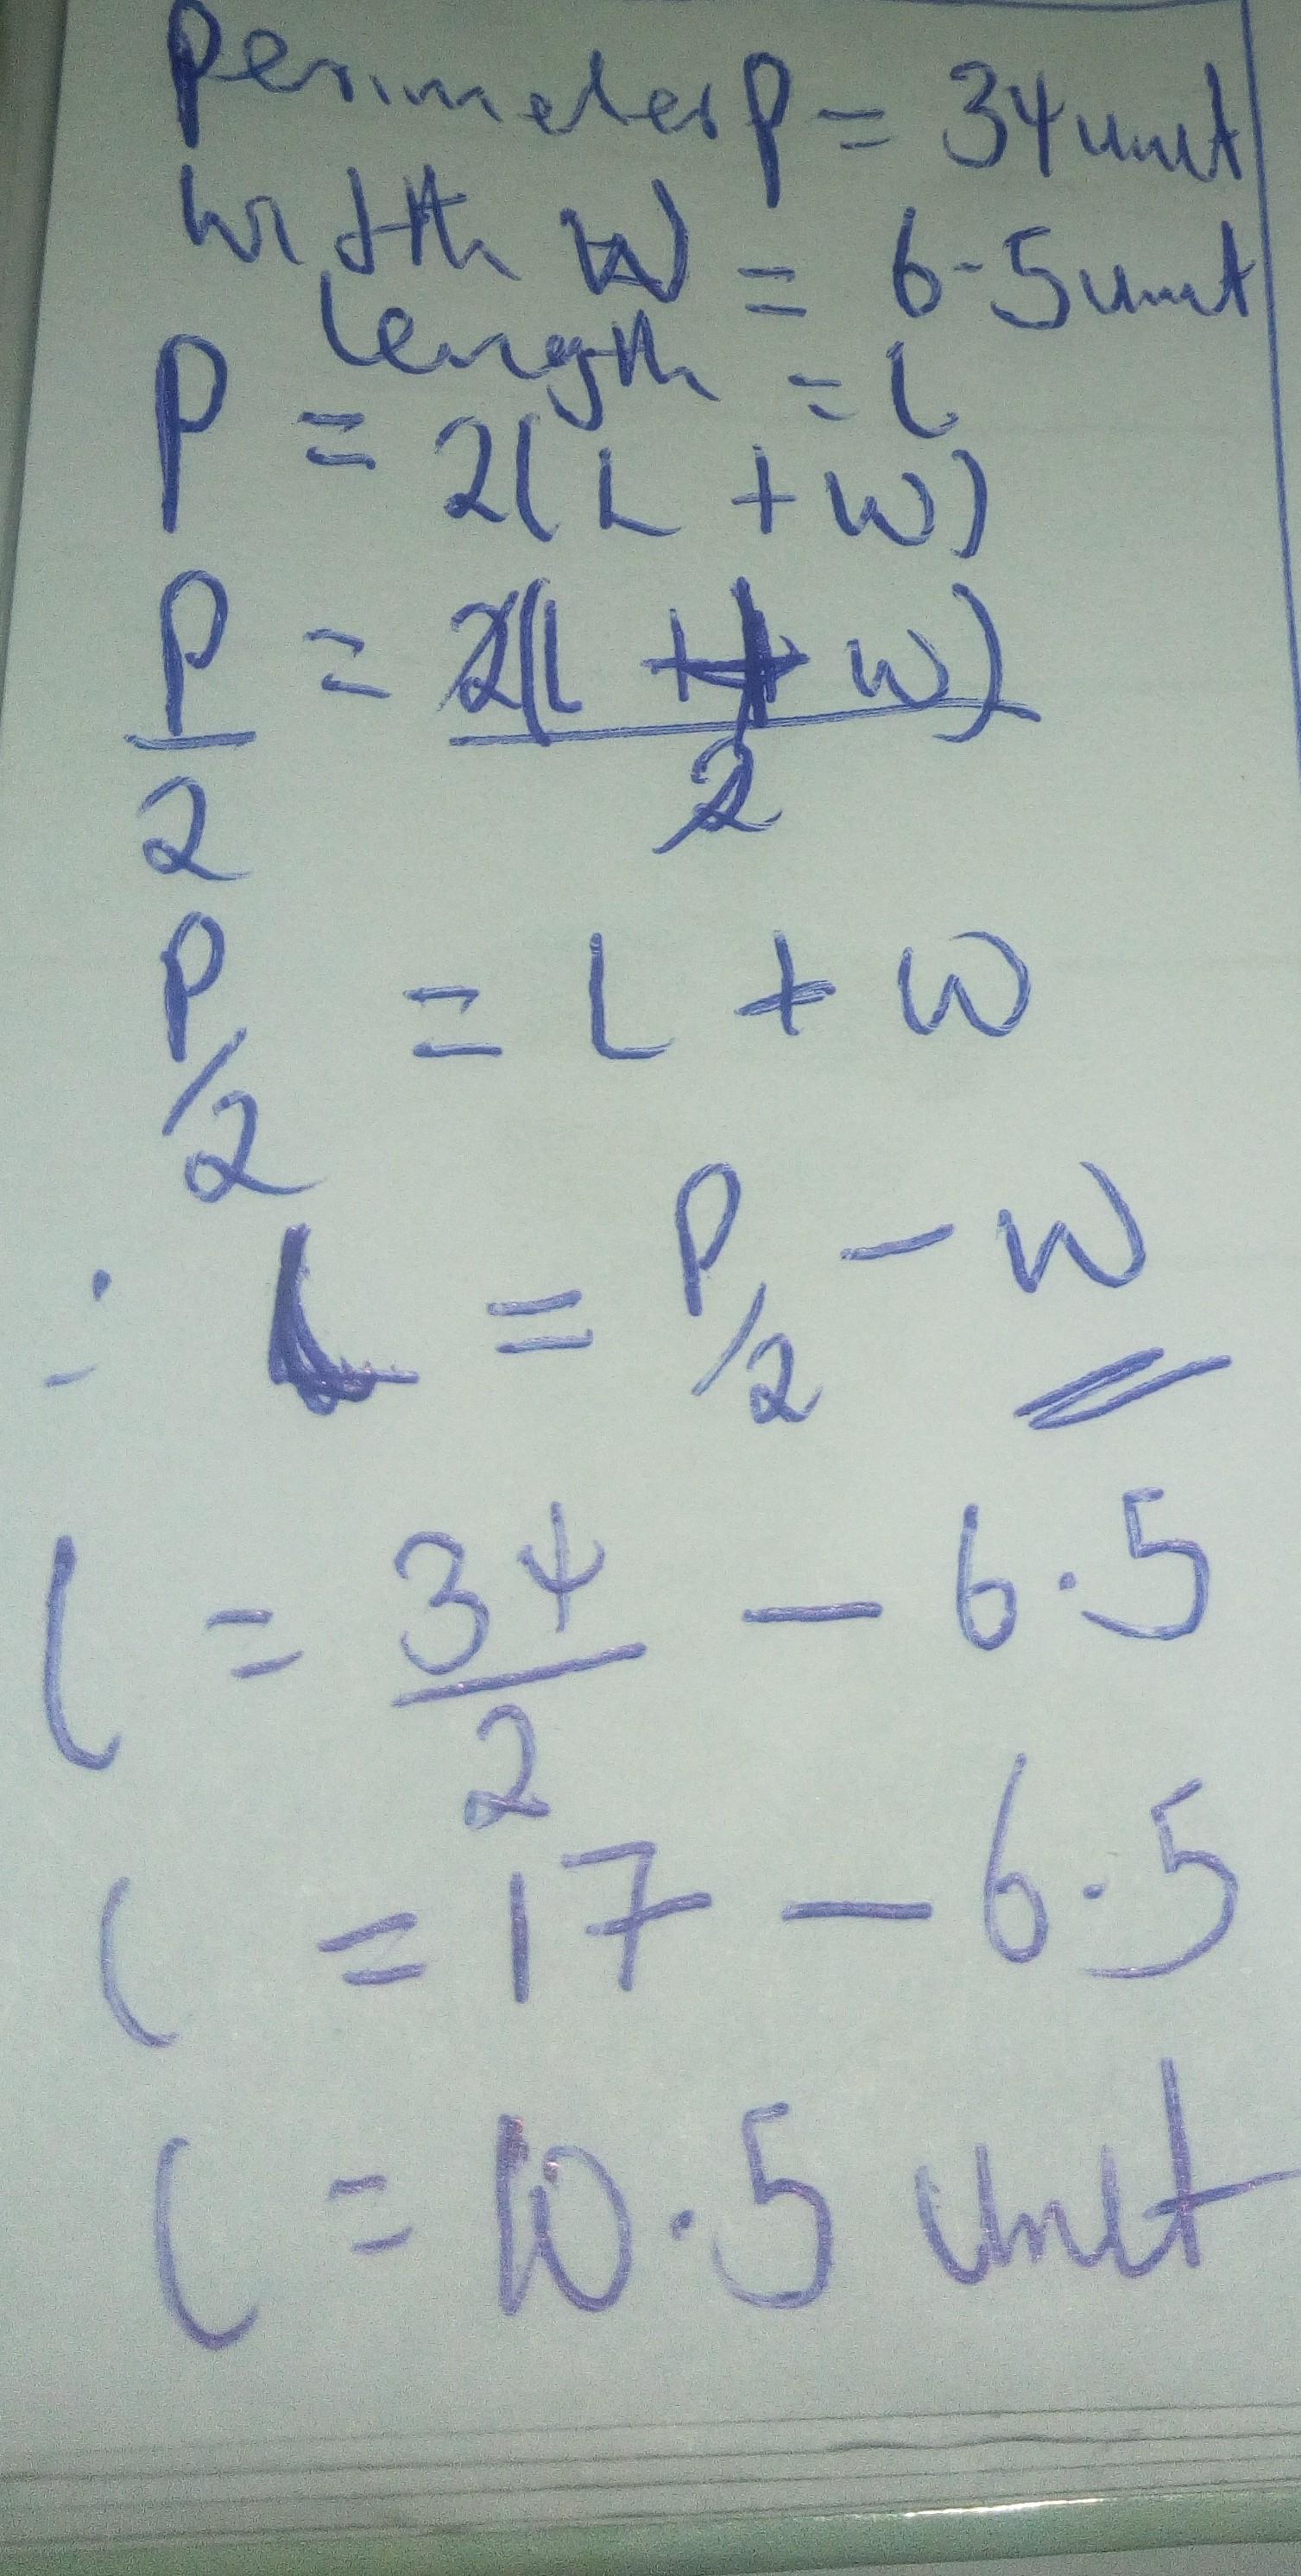 Perimeter P = 34 unit
width W = 6.5 unit
length = l
P = 2(L + W)
P/2 = 2(L + W)/2
P/2 = L + W
∴ L = P/2 - W
l = 34/2 - 6.5
l = 17 - 6.5
l = 10.5 unit